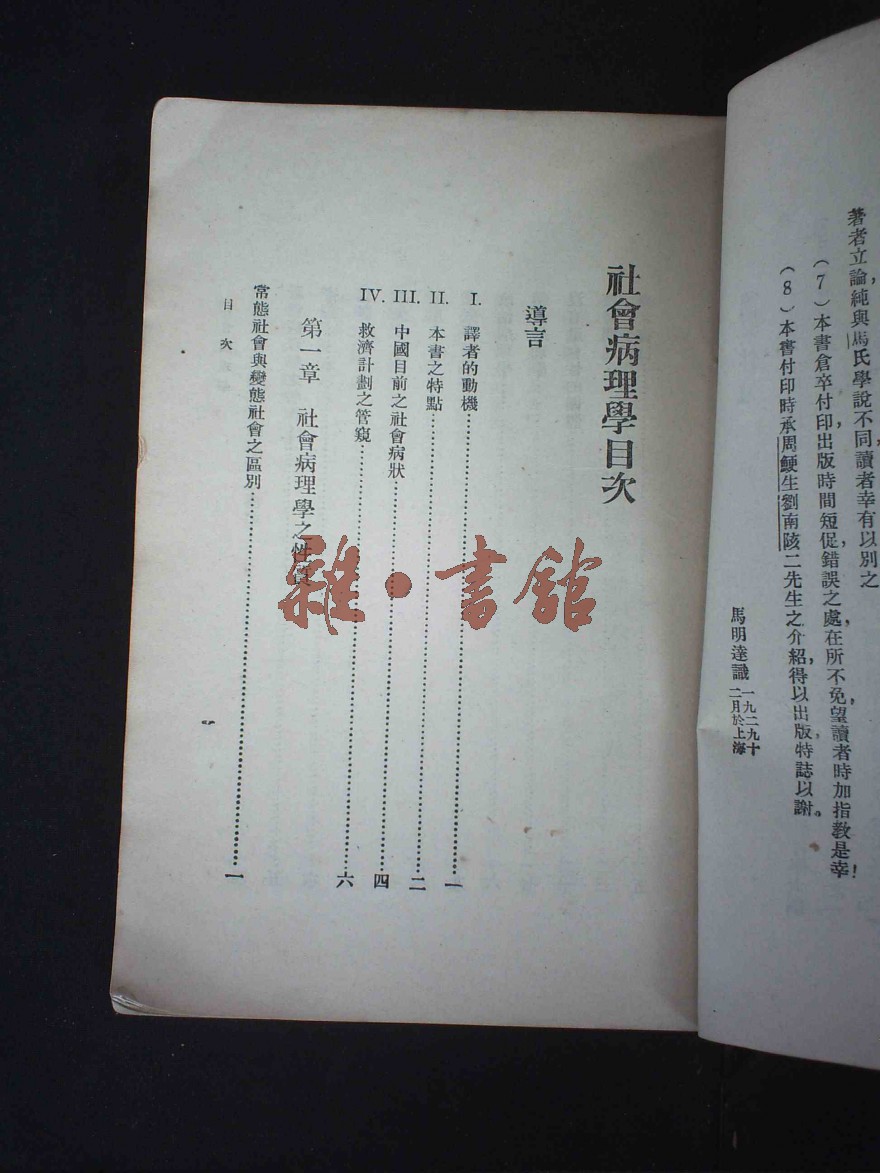 著者立論,純與馬氏學說不同,讀者幸有以別之
(7)本書倉卒付印,出版時間短促,錯誤之處,在所不免,望讀者時加指教是幸!
(8)本書付印時承周鯁生劉南陔二先生之介紹,得以出版,特誌以謝。
馬明達識 一九二九十二月於上海
社會病理學目次
導言
I. 譯者的動機……一
II. 本書之特點……二
III. 中國目前之社會病狀……四
IV. 救濟計劃之管窺……六
第一章 社會病理學之性
常態社會與變態社會之區別……一
目次
雜·書館